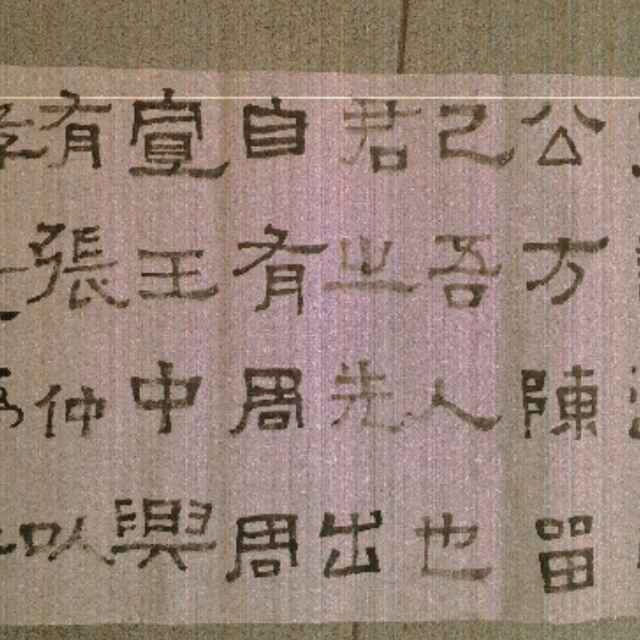 公方陳留
己吾人也
君之先出
自有周周
宣王中興
有張仲以